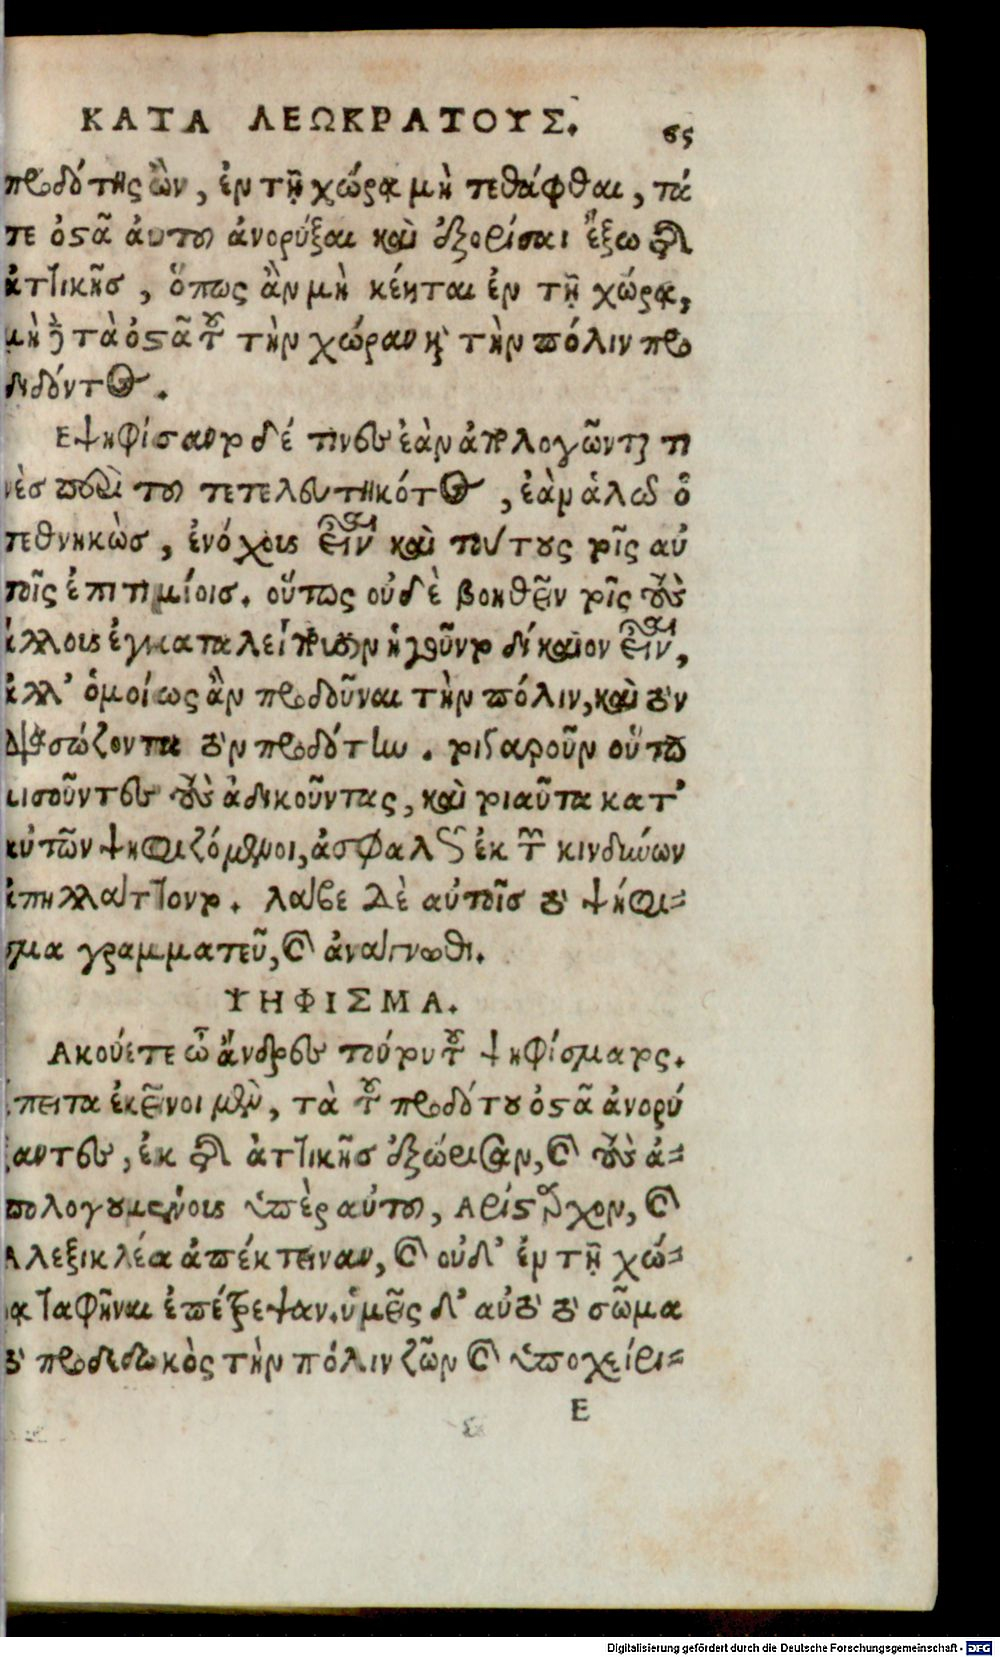 ΚΑΤΑ ΛΕΩΚΡΑΤΟΥΣ. 65
προδότης ὢν, ἐν τῇ χώρᾳ μὴ τεθάφθαι, τά
τε ὀστᾶ ἀυτοῦ ἀνορύξαι καὶ ἐξορίσαι ἔξω τῆς
ἀττικῆς, ὅπως ἂν μὴ κέηται ἐν τῇ χώρᾳ,
μηδὲ τὰ ὀστᾶ τοῦ τὴν χώραν καὶ τὴν πόλιν προ
διδόντος.
Εψηφίσαντο δέ τινες ἐὰν ἀπολογῶνταί τι
νὲς περὶ τοῦ τετελευτηκότος, ἐὰν ἁλῶ ὁ
τεθνηκὼς, ἐνόχοις εἶναι καὶ τούτους τοῖς αὐ
τοῖς ἐπιτιμίοις. οὕτως οὐδὲ βοηθεῖν τοῖς τοὺς
ἄλλους ἐγκαταλείπουσιν ἡγοῦντο δίκαιον εἶναι,
ἀλλ' ὁμοίως ἂν προδοῦναι τὴν πόλιν, καὶ τὸν
διασώζοντα τὸν προδότην. τοιγαροῦν οὕτω
μισοῦντες τοὺς ἀδικοῦντας, καὶ τοιαῦτα κατ'
αὐτῶν ψηφιζόμενοι, ἀσφαλῶς ἐκ τῶν κινδύνων
ἀπηλλάττοντο. λάβε δὲ αὐτοῖς τὸ ψήφι-
σμα γραμματεῦ, καὶ ἀνάγνωθι.
ΨΗΦΙΣΜΑ.
Ακούετε ὦ ἄνδρες τούτου τοῦ ψηφίσματος.
ἔπειτα ἐκεῖνοι μὲν, τὰ τοῦ προδότου ὀστᾶ ἀνορύ
ξαντες, ἐκ τῆς ἀττικῆς ἐξώρισαν, καὶ τοὺς ἀ-
πολογουμένους ὑπὲρ αὐτοῦ, Αρίσταρχον, καὶ
Αλεξικλέα ἀπέκτειναν, καὶ οὐδ' ἐν τῇ χώ-
ρᾳ ταφῆναι ἐπέτρεψαν. ὑμεῖς δ' αὐτὸ τὸ σῶμα
τὸ προδεδωκὸς τὴν πόλιν ζῶν καὶ ὑποχείρι-
E
Digitalisierung gefördert durch die Deutsche Forschungsgemeinschaft - DFG